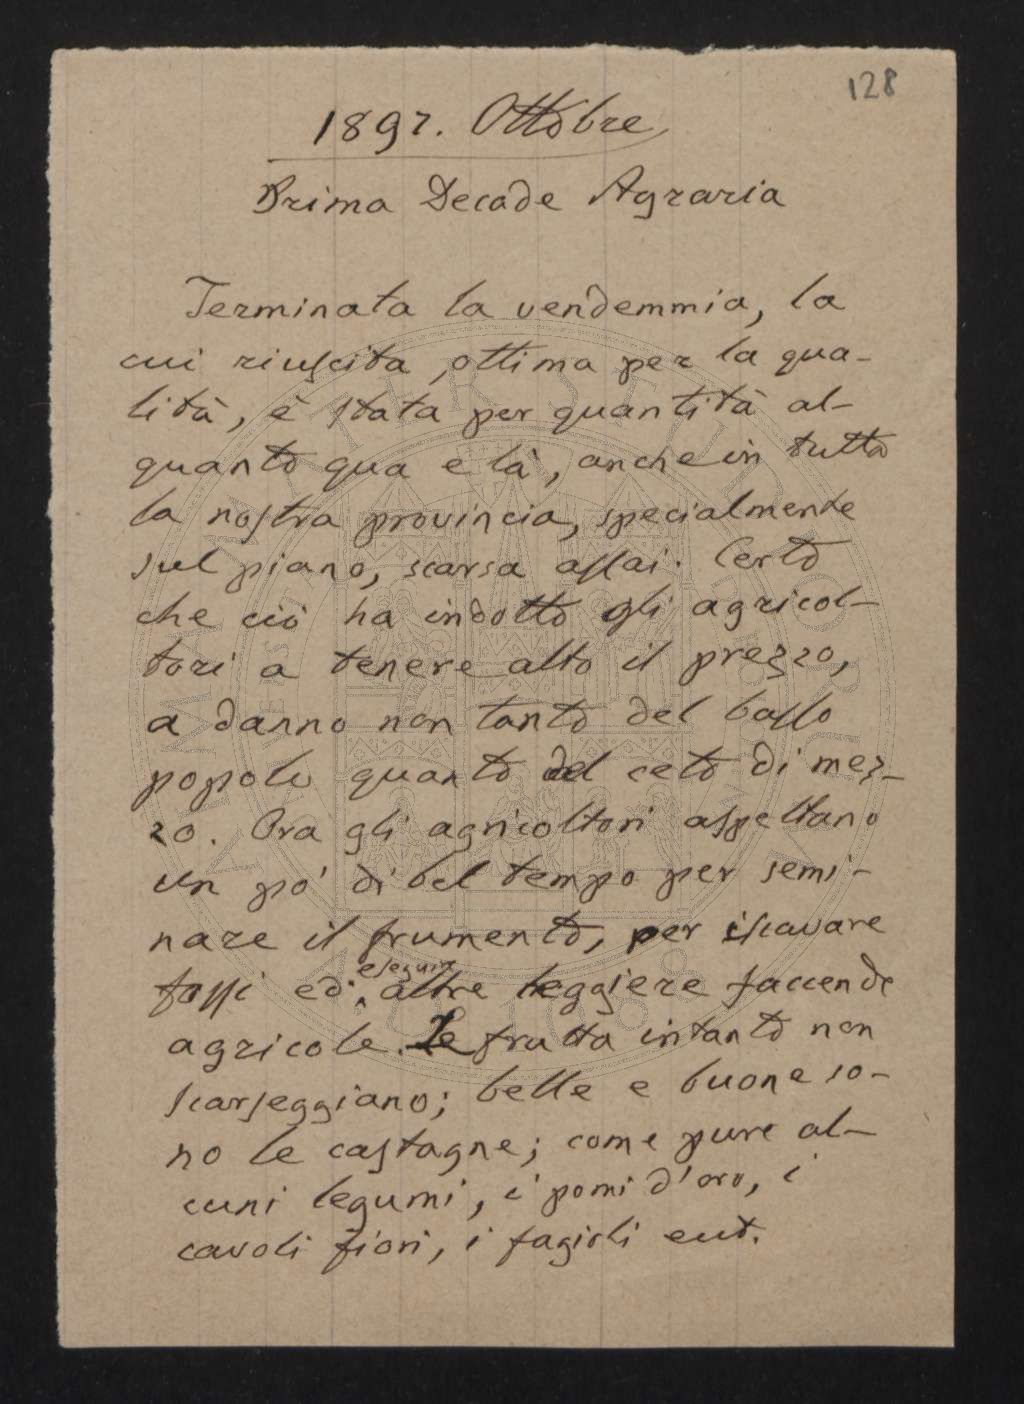 128
1897. Ottobre
Prima Decade Agraria
Terminata la vendemmia, la
cui riuscita, ottima per la qua-
lità, è stata per quantità al-
quanto qua e là, anche in tutta
la nostra provincia, specialmente
sul piano, scarsa assai. Certo
che ciò ha indotto gli agricol-
tori a tenere alto il prezzo,
a danno non tanto del basso
popolo quanto del ceto di mez-
zo. Ora gli agricoltori aspettano
un pò di bel tempo per semi-
nare il frumento, per iscavare
fossi ed eseguire altre leggiere faccende
agricole. Le frutta intanto non
scarseggiano; belle e buone so-
no le castagne; come pure al-
cuni legumi, i pomi d'oro, i
cavoli fiori, i fagioli ecct.